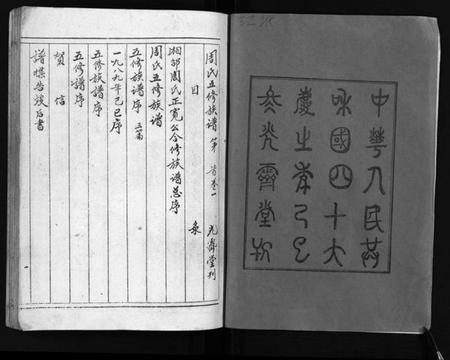 中華人民共
和國四十大
慶之年己巳
冬光霽堂刊
周氏五修族譜 第首卷一 光霽堂刊
目
湘邵周氏正寬公合修族譜总序
周氏五修族譜
五修族譜序
一九八九年己巳序
五修族譜序
五修譜序
賀信
譜牒告竣后書